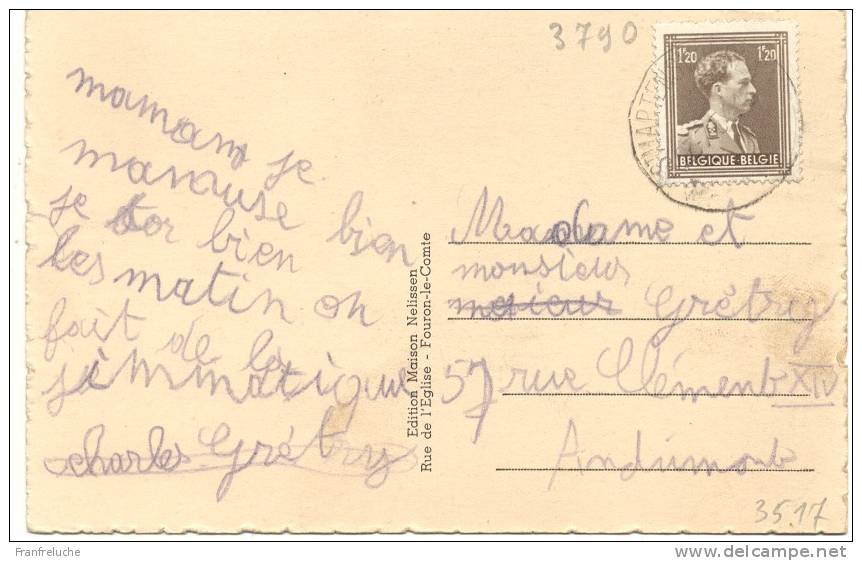 3790
1F20 1F20
BELGIQUE-BELGIE
maman je
manause bien
je dor bien
les matin on
fait de la
jimmatique
charles Grétry
Edition Maison Nelissen
Rue de l'Eglise - Fouron-le-Comte
Madame et
monsieus
Grétry
57 rue Clément XIV
Andimont
35.17
Franfreluche
www.delcampe.net